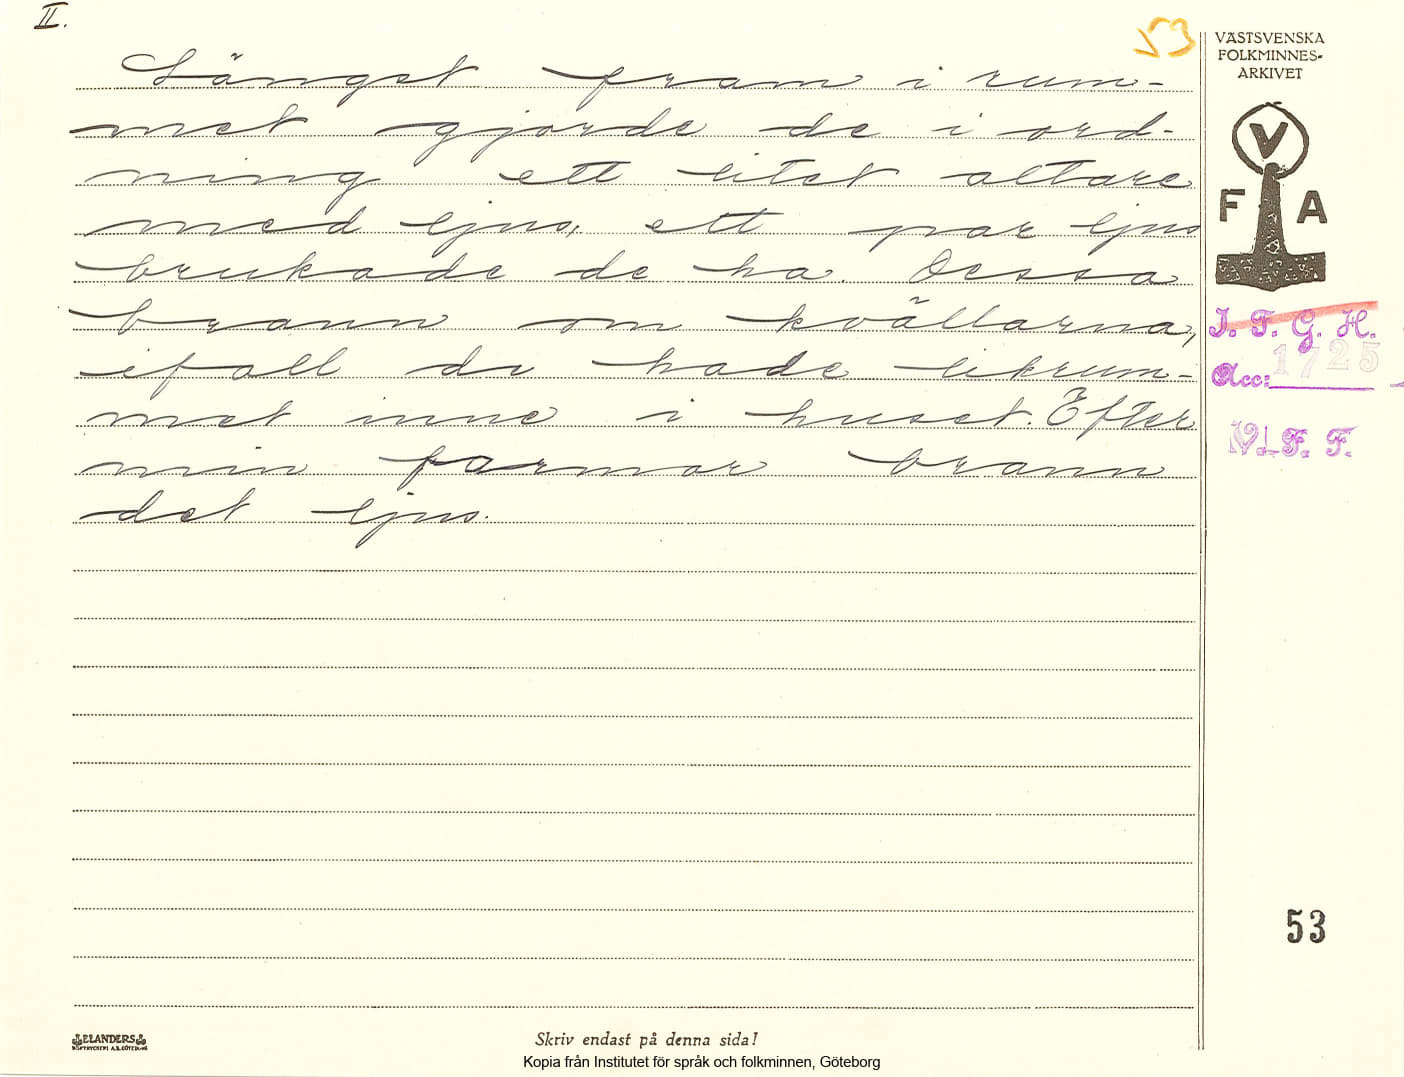 II.
53
Längst fram i rum-
met gjorde de i ord-
ning ett litet altare
med ljus, ett par ljus
brukade de ha. Dessa
brann om kvällarna,
ifall de hade likrum-
met inne i huset. Efter
min farmor brann
det ljus.
VÄSTSVENSKA
FOLKMINNES-
ARKIVET
V
F A
I. F. G. H.
Acc: 1725
V. F. F.
53
ELANDERS
Skriv endast på denna sida!
Kopia från Institutet för språk och folkminnen, Göteborg